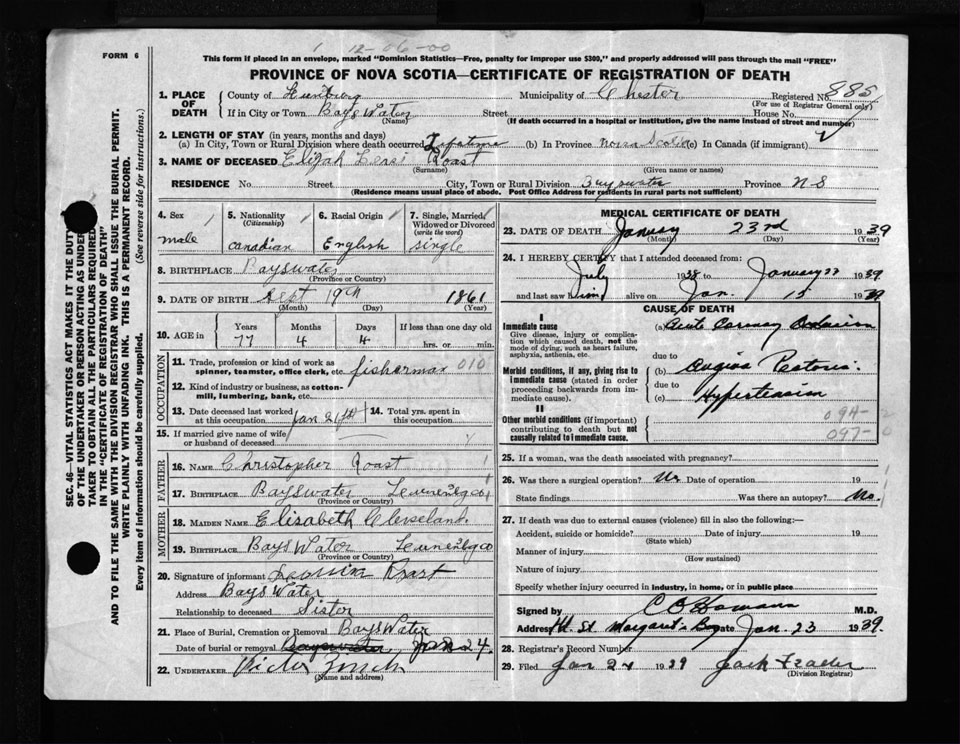 1 12-06-00
FORM 6
This form if placed in an envelope, marked "Dominion Statistics—Free, penalty for improper use $300," and properly addressed will pass through the mail "FREE"
PROVINCE OF NOVA SCOTIA—CERTIFICATE OF REGISTRATION OF DEATH
1. PLACE OF DEATH
County of Lunenburg Municipality of Chester Registered No. 885
(For use of Registrar General only)
If in City or Town Bays Water Street House No.
(Name) (If death occurred in a hospital or institution, give the name instead of street and number)
2. LENGTH OF STAY (in years, months and days)
(a) In City, Town or Rural Division where death occurred Lifetime (b) In Province Nova Scotia (c) In Canada (if immigrant)
3. NAME OF DECEASED Elijah Roast
(Surname) (Given name or names)
RESIDENCE No. Street City, Town or Rural Division Bayswater Province N S
(Residence means usual place of abode. Post Office Address for residents in rural parts not sufficient)
4. Sex
male
5. Nationality
(Citizenship)
Canadian
6. Racial Origin
English
7. Single, Married, Widowed or Divorced
(write the word)
single
8. BIRTHPLACE Bayswater
(Province or Country)
9. DATE OF BIRTH Sept 19th 1861
(Month) (Day) (Year)
10. AGE in
Years Months Days If less than one day old
77 4 4 hrs. or min.
OCCUPATION
11. Trade, profession or kind of work as spinner, teamster, office clerk, etc. fisherman 010
12. Kind of industry or business, as cotton-mill, lumbering, bank, etc.
13. Date deceased last worked at this occupation Jan
14. Total yrs. spent in this occupation
15. If married give name of wife or husband of deceased
FATHER
16. NAME Christopher Roast
17. BIRTHPLACE Bayswater Lunenbg co
(Province or Country)
MOTHER
18. MAIDEN NAME Elisabeth Cleveland
19. BIRTHPLACE Bays Water Lunenbg co
(Province or Country)
20. Signature of informant Roast
Address Bays Water
Relationship to deceased Sister
21. Place of Burial, Cremation or Removal Bays Water
Date of burial or removal Jan 24.
22. UNDERTAKER Victor Zinck
(Name and address)
MEDICAL CERTIFICATE OF DEATH
23. DATE OF DEATH January 23rd 1939
(Month) (Day) (Year)
24. I HEREBY CERTIFY that I attended deceased from:
July 1938 to January 23 1939
and last saw him alive on Jan. 15 1939
CAUSE OF DEATH
I
Immediate cause
Give disease, injury or complication which caused death, not the mode of dying, such as heart failure, asphyxia, asthenia, etc.
(a) Acute Coronary Occlusion
due to
Morbid conditions, if any, giving rise to immediate cause (stated in order proceeding backwards from immediate cause).
(b) Angina Pectoris.
due to
(c) Hypertension
II
Other morbid conditions (if important) contributing to death but not causally related to immediate cause.
094-2
097-0
25. If a woman, was the death associated with pregnancy?
26. Was there a surgical operation? No Date of operation 19
State findings Was there an autopsy? No.
27. If death was due to external causes (violence) fill in also the following:—
Accident, suicide or homicide? Date of injury 19
(State which)
Manner of injury
(How sustained)
Nature of injury
Specify whether injury occurred in industry, in home, or in public place
Signed by M.D.
Address Hd. St. Margaret's Bay Date Jan. 23 1939.
28. Registrar's Record Number
29. Filed Jan 24 1939 Jack
(Division Registrar)
SEC. 46—VITAL STATISTICS ACT MAKES IT THE DUTY
OF THE UNDERTAKER OR PERSON ACTING AS UNDERTAKER TO OBTAIN ALL THE PARTICULARS REQUIRED
IN THE "CERTIFICATE OF REGISTRATION OF DEATH"
AND TO FILE THE SAME WITH THE DIVISION REGISTRAR WHO SHALL ISSUE THE BURIAL PERMIT.
WRITE PLAINLY WITH UNFADING INK. THIS IS A PERMANENT RECORD.
Every item of information should be carefully supplied. (See reverse side for instructions.)